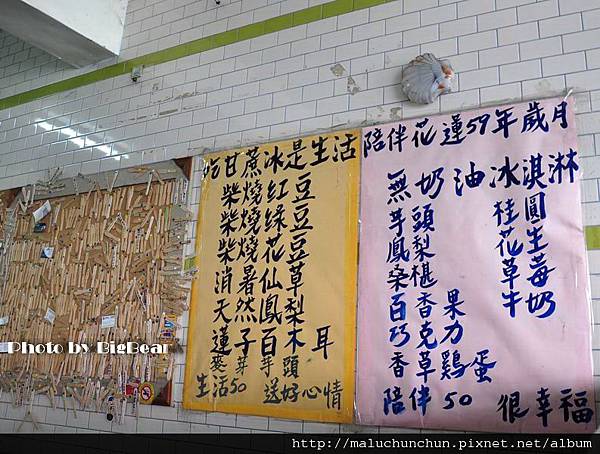 吃甘蔗冰是生活
柴燒紅豆
柴燒綠豆
柴燒花豆
消暑仙草
天然鳳梨
蓮子百木耳
麥芽芋頭
生活50 送好心情
陪伴花蓮59年歲月
無奶油冰淇淋
芋頭 桂圓
鳳梨 花生
桑椹 草莓
百香果 牛奶
巧克力
香草雞蛋
陪伴50 很幸福
Photo by BigBear
http://maluchunchun.pixnet.net/album